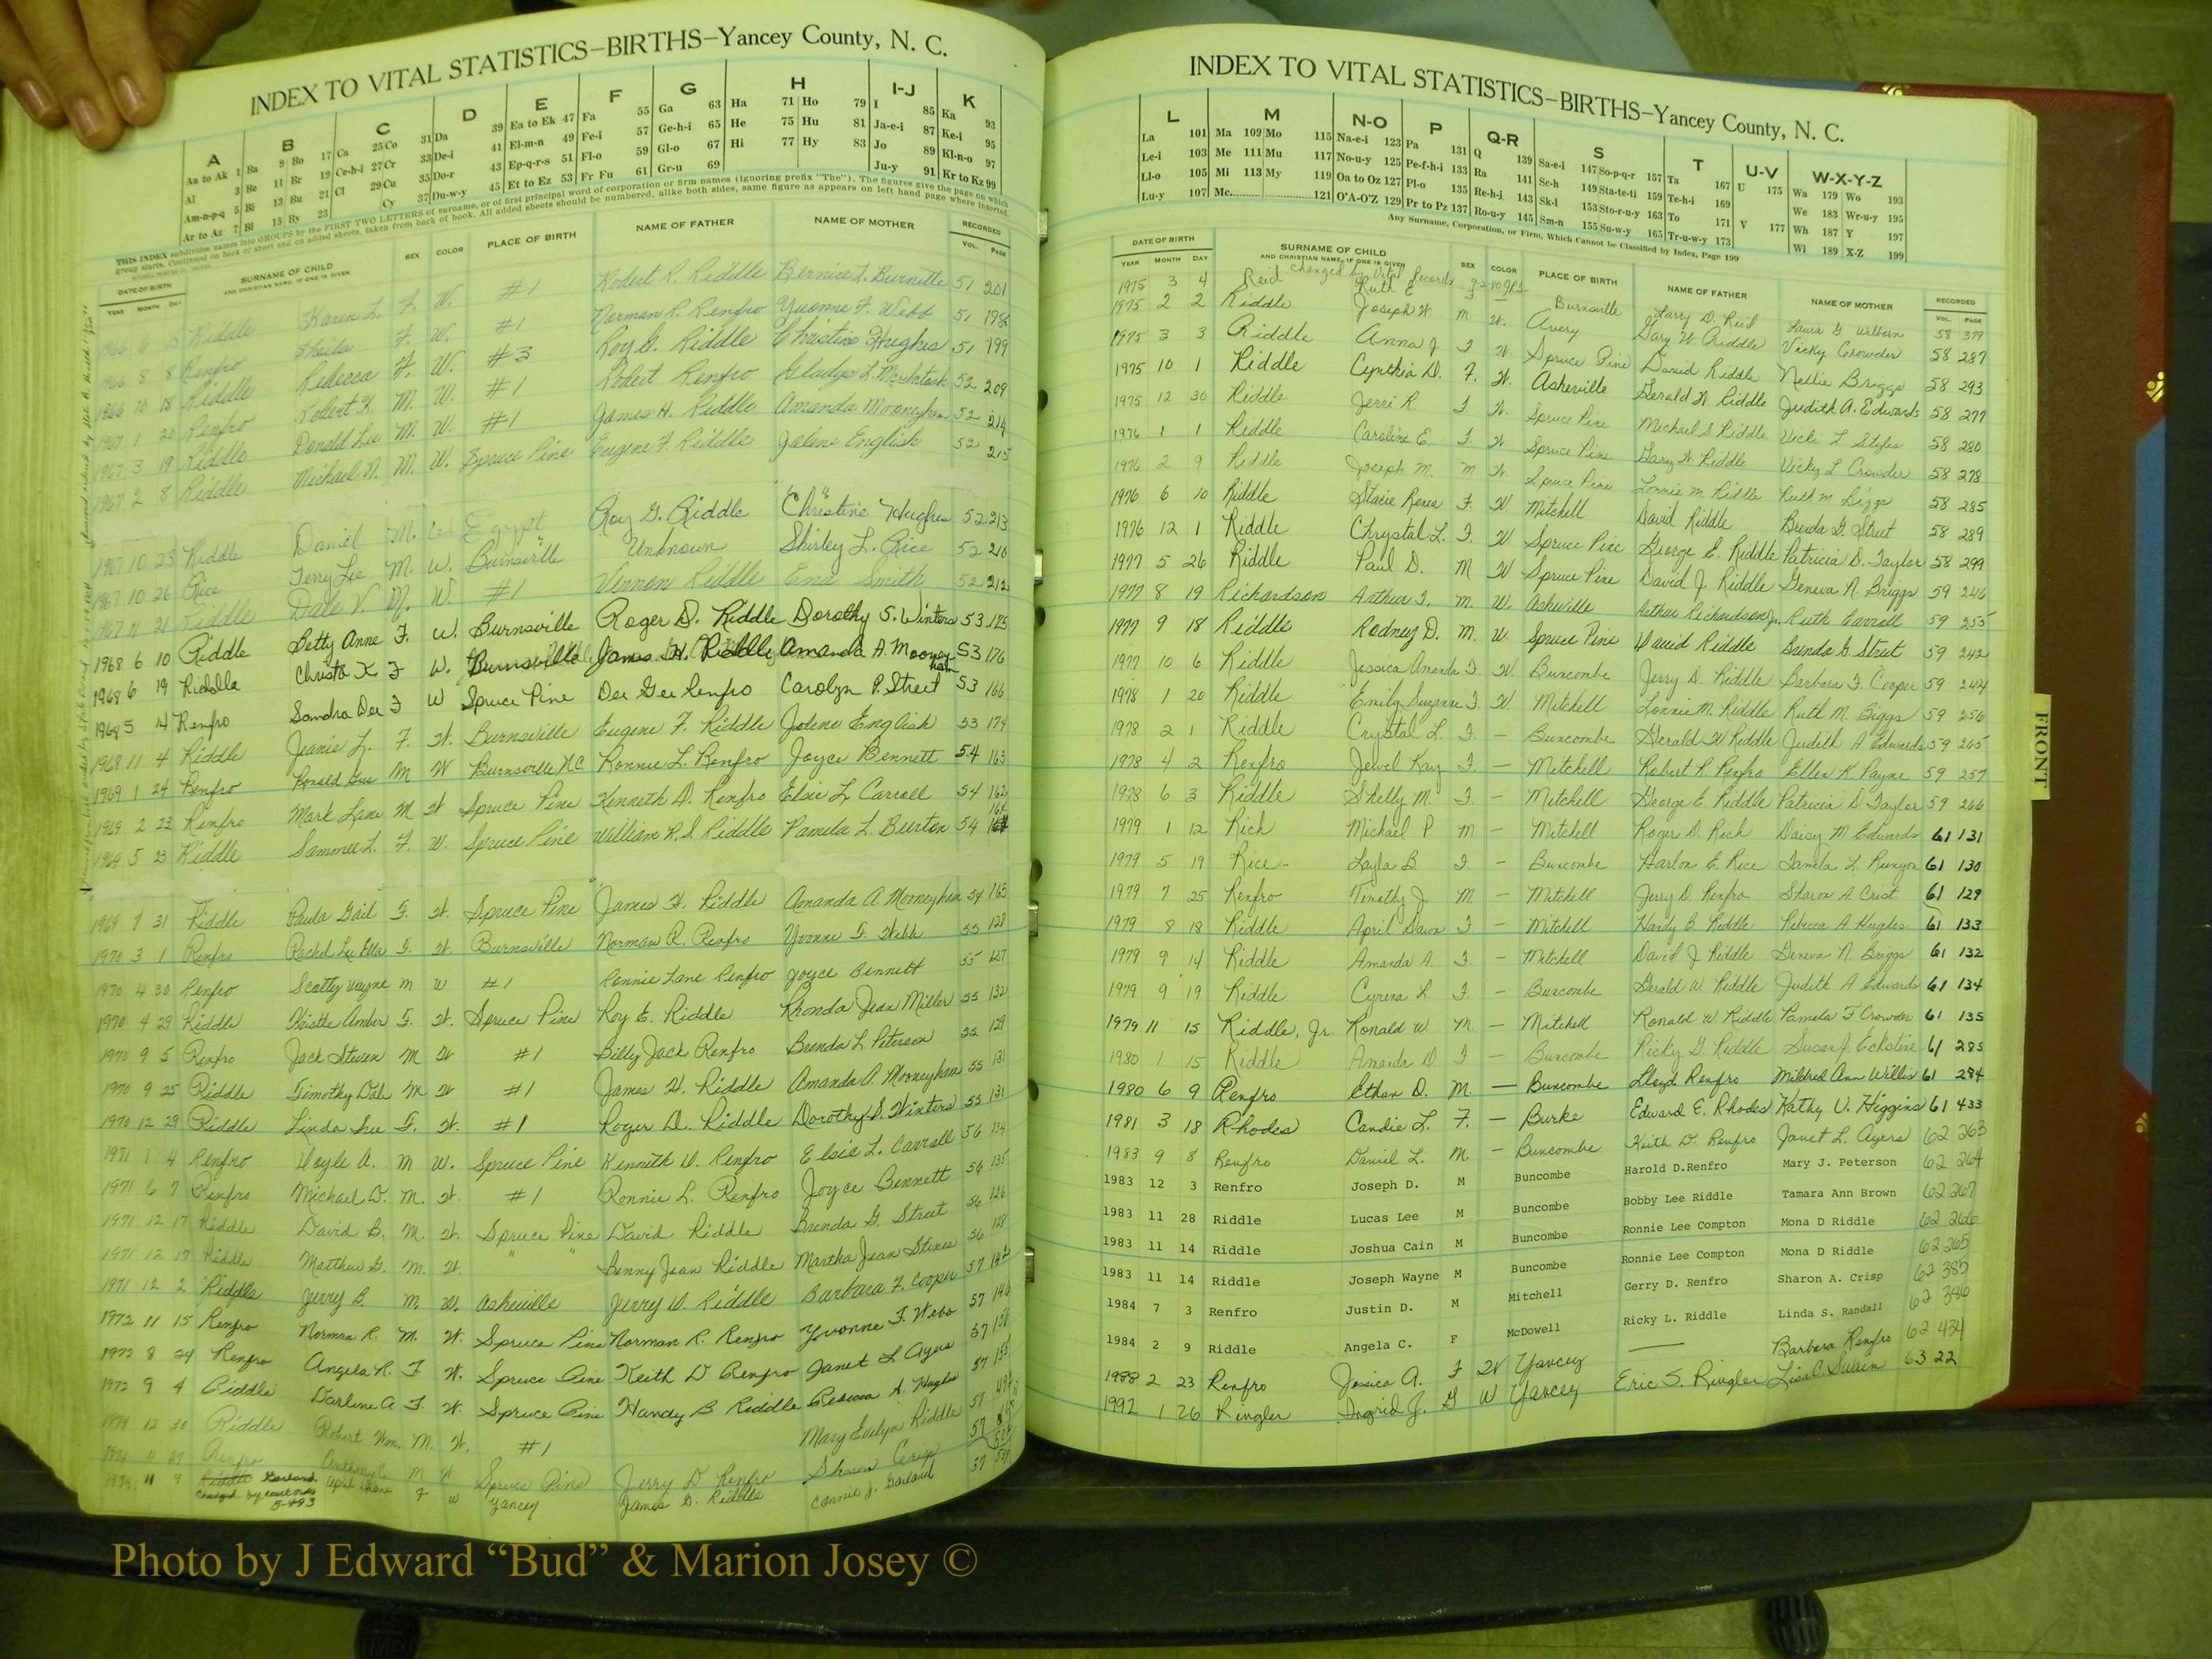 INDEX TO VITAL STATISTICS–BIRTHS–Yancey County, N. C.
A B C D E F G H I-J K
Aa to Ak 1 Ba 9 Bo 17 Ca 25 Co 31 Da 39 Ea to Ek 47 Fa 55 Ga 63 Ha 71 Ho 79 I 85 Ka 93
Al 3 Be 11 Br 19 Ce-h-i 27 Cr 33 De-i 41 El-m-n 49 Fe-i 57 Ge-h-i 65 He 75 Hu 81 Ja-e-i 87 Ke-i 95
Am-n-p-q 5 Bi 13 Bu 21 Cl 29 Cu 35 Do-r 43 Ep-q-r-s 51 Fl-o 59 Gl-o 67 Hi 77 Hy 83 Jo 89 Kl-n-o 97
Ar to Az 7 Bl 15 By 23 Cy 37 Du-w-y 45 Et to Ez 53 Fr Fu 61 Gr-u 69 Ju-y 91 Kr to Kz 99
THIS INDEX subdivides names into GROUPS by the FIRST TWO LETTERS of surname, or of first principal word of corporation or firm names (ignoring prefix "The"). The figures give the page on which
group starts. Continued on back of sheet and on added sheets, taken from back of book. All added sheets should be numbered, alike both sides, same figure as appears on left hand page where inserted.
DATE OF BIRTH SURNAME OF CHILD SEX COLOR PLACE OF BIRTH NAME OF FATHER NAME OF MOTHER RECORDED
YEAR MONTH DAY AND CHRISTIAN NAME, IF ONE IS GIVEN VOL. PAGE
Riddle Karen L. F. W. #1 Robert R. Riddle Bernice L. Burnette 51 201
1966 8 8 Renfro Sheila F. W. #1 Norman R. Renfro Yvonne F. Webb 51
1966 10 18 Riddle Rebecca F. W. #3 Roy G. Riddle Christine Hughes 51 199
1967 1 20 Renfro Robert K. M. W. #1 Robert Renfro Gladys L. McIntosh 52 209
1967 3 19 Riddle Donald Lee M. W. #1 James H. Riddle Amanda Mooneyham 52 214
1967 2 8 Riddle Michael N. M. W. Spruce Pine Eugene F. Riddle Jalene English 52 215
1967 10 23 Riddle Daniel M. W. Egypt Roy G. Riddle "Christine" Hughes 52 213
1967 10 26 Rice Terry Lee M. W. Burnsville Unknown Shirley L. Rice 52 210
1967 11 21 Riddle Dale V. M. W. #1 Vernon Riddle Ena Smith 52 212
1968 6 10 Riddle Betty Anne F. W. Burnsville Roger D. Riddle Dorothy S. Winters 53 175
1968 6 19 Riddle Christa K. F W. Burnsville James H. Riddle Amanda A. Mooneyham 53 176
1968 5 14 Renfro Sandra Dee F W Spruce Pine Dee Gee Renfro Carolyn P. Street 53 166
1968 11 4 Riddle Jeanie L. F. W. Burnsville Eugene F. Riddle Jolene English 53 174
1969 1 24 Renfro Ronald Gue M W Burnsville N.C. Ronnie L. Renfro Joyce Bennett 54 163
1969 2 23 Renfro Mark Lane M W Spruce Pine Kenneth D. Renfro Elsie L. Carroll 54 162
1969 5 23 Riddle Sammee L. F. W. Spruce Pine William R.S. Riddle Pamela L. Burton 54 164
1969 8 31 Riddle Paula Gail F. W. Spruce Pine James H. Riddle Amanda A. Mooneyham 54 165
1970 3 1 Renfro Rachel Lee Ella F. W. Burnsville Norman R. Renfro Yvonne F. Webb 55 128
1970 4 30 Renfro Scotty Wayne M W #1 Ronnie Lane Renfro Joyce Bennett 55 127
1970 4 29 Riddle Kristle Amber F. W. Spruce Pine Roy E. Riddle Rhonda Jean Miller 55 132
1970 9 5 Renfro Jack Steven M W #1 Billy Jack Renfro Brenda L. Peterson 55 129
1970 9 25 Riddle Timothy Dale M W #1 James H. Riddle Amanda A. Mooneyham 55 131
1970 12 29 Riddle Linda Sue F. W. #1 Roger D. Riddle Dorothy S. Winters 55 131
1971 1 4 Renfro Doyle A. M W. Spruce Pine Kenneth D. Renfro Elsie L. Carroll 56 134
1971 6 7 Renfro Michael D. M. W. #1 Ronnie L. Renfro Joyce Bennett 56 135
1971 12 17 Riddle David B. M. W. Spruce Pine David Riddle Brenda G. Street 56 126
1971 12 17 Riddle Matthew G. M. W. " " Benny Jean Riddle Martha Jean Stines 56 128
1971 12 2 Riddle Jerry B. M. W. Asheville Jerry D. Riddle Barbara F. Cooper 57
1972 11 15 Renfro Norman R. M. W. Spruce Pine Norman R. Renfro Yvonne F. Webb 57 146
1972 8 24 Renfro Angela R. F W. Spruce Pine Keith D Renfro Janet L Ayers 57
1972 9 4 Riddle Darlene A F. W. Spruce Pine Handy B Riddle Rebecca A. Hughes 57
12 30 Riddle Robert Wm. M. W. #1 Mary Evelyn Riddle 57
11 27 Renfro Anthony C. M W Spruce Pine Jerry D Renfro Sharon Crisp 57
1974 11 9 Riddle Garland April Diane F W Yancey James D. Riddle Connie J. Garland 57
Changed by court order
5-4-93
INDEX TO VITAL STATISTICS–BIRTHS–Yancey County, N. C.
L M N-O P Q-R S T U-V W-X-Y-Z
La 101 Ma 109 Mo 115 Na-e-i 123 Pa 131 Q 139 Sa-e-i 147 So-p-q-r 157 Ta 167 U 175 Wa 179 Wo 193
Le-i 103 Me 111 Mu 117 No-u-y 125 Pe-f-h-i 133 Ra 141 Sc-h 149 Sta-te-ti 159 Te-h-i 169 We 183 Wr-u-y 195
Ll-o 105 Mi 113 My 119 Oa to Oz 127 Pl-o 135 Re-h-j 143 Sk-l 153 Sto-r-u-y 163 To 171 V 177 Wh 187 Y 197
Lu-y 107 Mc 121 O'A-O'Z 129 Pr to Pz 137 Ro-u-y 145 Sm-n 155 Su-w-y 165 Tr-u-w-y 173 Wi 189 X-Z 199
Any Surname, Corporation, or Firm, Which Cannot be Classified by Index, Page 199
DATE OF BIRTH SURNAME OF CHILD SEX COLOR PLACE OF BIRTH NAME OF FATHER NAME OF MOTHER RECORDED
YEAR MONTH DAY AND CHRISTIAN NAME, IF ONE IS GIVEN VOL. PAGE
changed by Vital Records
1975 3 4 Reid Ruth E F Burnsville Larry D. Reid Laura G 58 379
1975 2 2 Riddle Joseph W M W. Avery Gary W Riddle Vicky Crowder 58 287
1975 3 3 Riddle Anna J F W. Spruce Pine David Riddle Nellie Briggs 58 293
1975 10 1 Riddle Cynthia D. F. W. Asheville Gerald W Riddle Judith A. Edwards 58 277
1975 12 30 Riddle Jerri R. F W. Spruce Pine Michael S Riddle Vicki L Styles 58 280
1976 1 1 Riddle Caroline E. F. W Spruce Pine Gary W Riddle Vicky L Crowder 58 278
1976 2 9 Riddle Joseph M. M W. Spruce Pine Lonnie M. Riddle Ruth M Biggs 58 285
1976 6 10 Riddle Stacie Renea F. W Mitchell David Riddle Brenda G. Street 58 289
1976 12 1 Riddle Chrystal L. F. W Spruce Pine George E. Riddle Patricia D. Taylor 58 299
1977 5 26 Riddle Paul D. M W Spruce Pine David J. Riddle Geneva N. Briggs 59 246
1977 8 19 Richardson Arthur F. M. W. Asheville Arthur Richardson Jr. Ruth Carroll 59 255
1977 9 18 Riddle Rodney D. M. W. Spruce Pine David Riddle Brenda G. Street 59 242
1977 10 6 Riddle Jessica Amanda F W. Buncombe Jerry D. Riddle Barbara F. Cooper 59 244
1978 1 20 Riddle Emily Suzanne F. W Mitchell Lonnie M. Riddle Ruth M. Biggs 59 256
1978 2 1 Riddle Crystal L. F. – Buncombe Gerald W Riddle Judith A Edwards 59 265
1978 4 2 Renfro Jewel Kay F. – Mitchell Robert P. Renfro Ellen K. Payne 59 257
1978 6 3 Riddle Shelly M. F. – Mitchell George E. Riddle Patricia D Taylor 59 266
1979 1 12 Rich Michael P. M – Mitchell Roger D. Rich Daisy M Edwards 61 131
1979 5 19 Rice Layla B. F – Buncombe Harlon E. Rice Tamela L Runyon 61 130
1979 7 25 Renfro Timothy J. M – Mitchell Jerry D Renfro Sharon A. Crist 61 129
1979 8 18 Riddle April Dawn F – Mitchell Hardy B. Riddle Rebecca A Hughes 61 133
1979 9 14 Riddle Amanda A. F. – Mitchell David J Riddle Geneva N. Briggs 61 132
1979 9 19 Riddle Cyrena L F. – Buncombe Gerald W. Riddle Judith A Edwards 61 134
1979 11 15 Riddle, Jr Ronald W M – Mitchell Ronald W Riddle Pamela F Crowder 61 135
1980 1 15 Riddle Amanda D F – Buncombe Ricky G Riddle Susan J. Eckstine 61 285
1980 6 9 Renfro Ethan D. M. – Buncombe Lloyd Renfro Mildred Ann Willis 61 284
1981 3 18 Rhodes Candie L. F. – Burke Edward E. Rhodes Kathy V. Higgins 61 433
1983 9 8 Renfro Daniel L. M. – Buncombe Keith D. Renfro Janet L. Ayers 62 263
1983 12 3 Renfro Joseph D. M Buncombe Harold D.Renfro Mary J. Peterson 62 264
1983 11 28 Riddle Lucas Lee M Buncombe Bobby Lee Riddle Tamara Ann Brown 62 267
1983 11 14 Riddle Joshua Cain M Buncombe Ronnie Lee Compton Mona D Riddle 62 266
1983 11 14 Riddle Joseph Wayne M Buncombe Ronnie Lee Compton Mona D Riddle 62 265
1984 7 3 Renfro Justin D. M Mitchell Gerry D. Renfro Sharon A. Crisp 62 385
1984 2 9 Riddle Angela C. F McDowell Ricky L. Riddle Linda S. Randall 62 386
1988 2 23 Renfro Jessica A. F W Yancey — Barbara Renfro 62 434
1992 1 26 Ringler Ingrid J. G W Yancey Eric S. Ringler Lisa C. 63 22
FRONT
Photo by J Edward “Bud” & Marion Josey ©